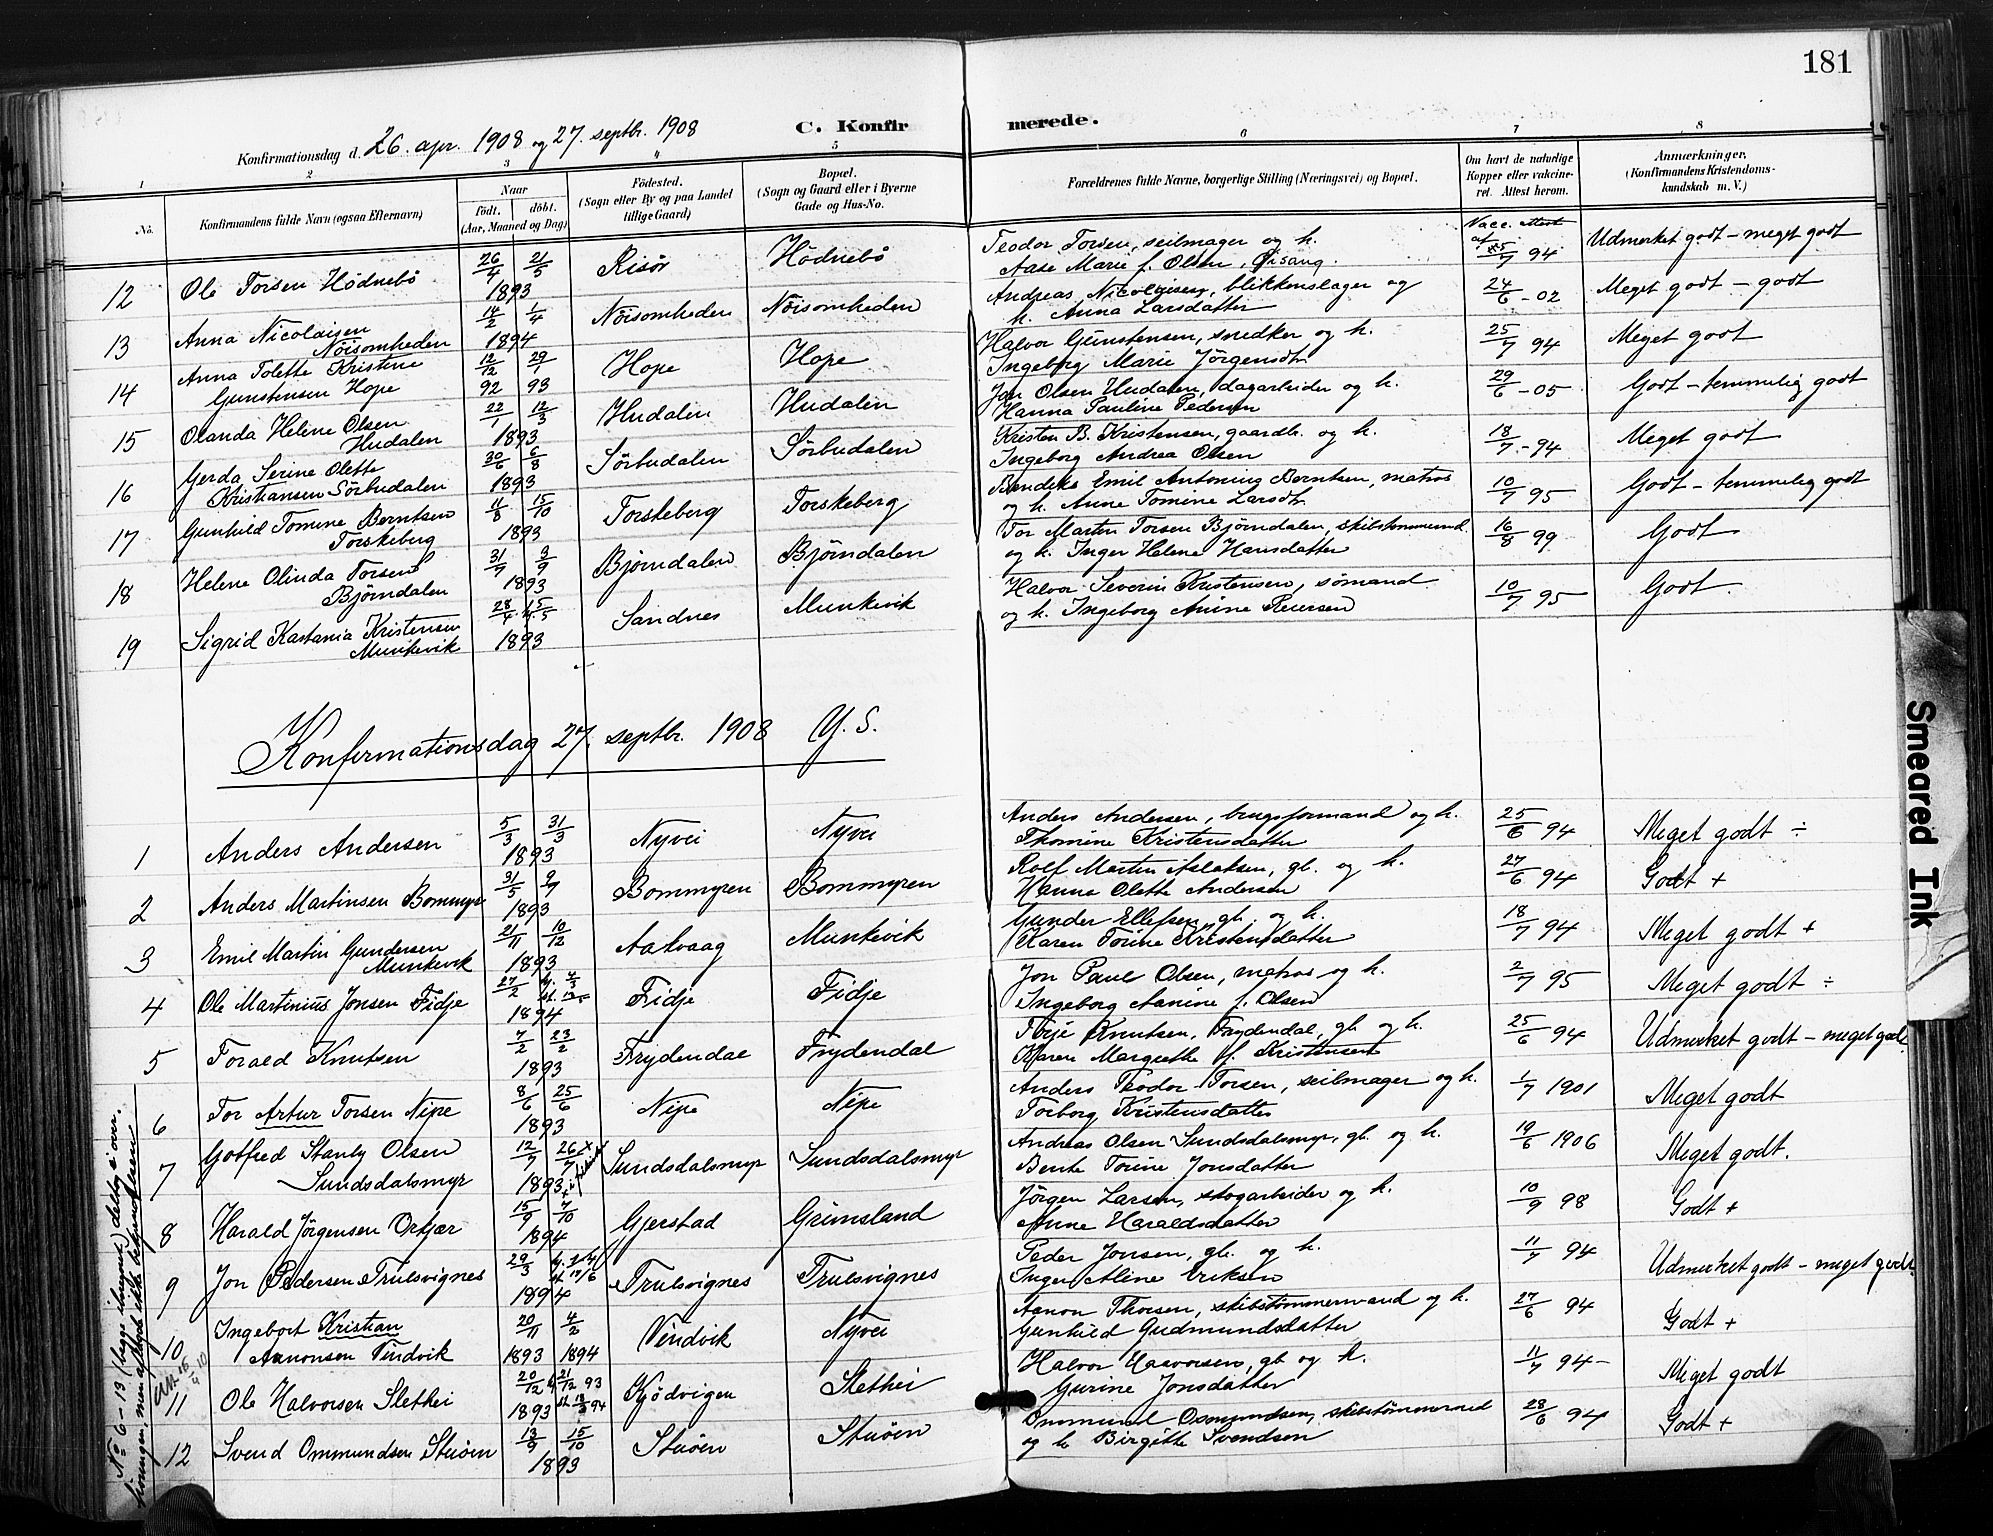 181
Konfirmationsdag d. 26. apr. 1908 og 27. septbr. 1908
C. Konfirmerede.
1 2 3 4 5 6 7 8
No.
Konfirmandens fulde Navn (ogsaa Efternavn)
Naar
født. døbt.
(Aar, Maaned og Dag)
Fødested.
(Sogn eller By og paa Landet
tillige Gaard)
Bopæl.
(Sogn og Gaard eller i Byerne
Gade og Hus-No.
Forældrenes fulde Navne, borgerlige Stilling (Næringsvei) og Bopæl.
Om havt de naturlige
Kopper eller vakcineret. Attest herom.
Anmærkninger.
(Konfirmandens Kristendomskundskab m. V.)
12 Ole Torsen Hödnebö 26/4 21/5 1893 Risör Hödnebö
Teodor Torsen, seilmager og h.
Aase Marie f. Olsen, Öisang. Vacc. attest af 25/7 94 Udmerket godt – meget godt
13 Anna Nicolaisen
Nöisomheden 14/2 1/4 1894 Nöisomheden Nöisomheden
Andreas Nicolaisen, blikkenslager og
h. Anna Larsdatter 24/6 - 02 Meget godt – godt
14 Anna Tolette Kristine
Gunstensen Hope 12/12 92 29/1 93 Hope Hope
Halvor Gunstensen, snedker og h.
Ingeborg Marie Jörgensdt. 25/7 94 Meget godt
15 Olanda Helene Olsen
Hudalen 22/1 12/3 1893 Hudalen Hudalen
Jon Olsen Hudalen, dagarbeider og h.
Hanna Pauline Pedersen 29/6 - 05 Godt – temmelig godt
16 Gerda Serine Olette
Kristiansen Sörbudalen 30/6 6/8 1893 Sörbudalen Sörbudalen
Kristen B. Kristensen, gaardb. og h.
Ingeborg Andrea Olsen 18/7 - 94 Meget godt
17 Gunhild Tomine Berntsen
Torskeberg 11/8 15/10 1893 Torskeberg Torskeberg
Bendiks Emil Antoning Berntsen, matros
og h. Anne Tomine Larsdt. 10/7 95 Godt – temmelig godt
18 Helene Olinda Torsen
Bjørndalen 31/7 3/9 1893 Bjørndalen Bjørndalen
Tor Martin Torsen Bjørndalen, skibstömmermd.
og h. Inger Helene Hansdatter 16/8 99 Godt
19 Sigrid Kastania Kristensen
Munkevik 28/4 1893 Sandnes Munkevik
Halvor Severin Kristensen, sömand
og h. Ingeborg Anine Reiersen 10/7 95 Godt.
Konfirmationsdag 27. septbr. 1908 Y. S.
1 Anders Andersen 5/3 31/3 1893 Nyvei Nyvei
Anders Andersen, brugsformand og h.
Thomine Kristensdatter 25/6 94 Meget godt ÷
2 Anders Martinsen Bommyr 31/5 9/7 1893 Bommyren Bommyren
Rolf Martin Aslaksen, gb. og h.
Hanna Olette Andersen 27/6 94 Godt +
3 Emil Martin Gundersen
Munkevik 21/11 10/12 1893 Aalvaag Munkevik
Gunder Ellefsen, gb. og h.
Karen Torine Kristensdatter 18/7 94 Meget godt +
4 Ole Martinius Jonsen Fidje 27/2 1894 Fidje Fidje
Jon Paul Olsen, matros og h.
Ingeborg Aanine f. Olsen 2/7 95 Meget godt ÷
5 Torald Knutsen 7/2 23/2 1893 Frydendal Frydendal
Terje Knutsen, Frydendal, gb. og h.
Karen Margrethe f. Kristensen 25/6 94 Udmerket godt – meget godt
6 Tor Artur Torsen Nipe 8/6 25/6 1893 Nipe Nipe
Anders Teodor Torsen, seilmager og h.
Torborg Kristensdatter 1/7 1901 Meget godt
7 Gotfred Stanly Olsen
Sundsdalsmyr 12/7 26/7 1893 Sundsdalsmyr Sundsdalsmyr
Andreas Olsen Sundsdalsmyr, gb. og h.
Bente Torine Jonsdatter 19/6 1906 Meget godt.
8 Harald Jörgensen Orkjær 15/9 7/10 1894 Gjerstad Grimsland
Jörgen Larsen, skogarbeider og h.
Anne Haraldsdatter 10/9 98 Godt +
9 Jon Pedersen Trulsvignes 29/3 1894 Trulsvignes Trulsvignes
Peder Jonsen, gb. og h.
Inger Aline Eriksen 11/7 94 Udmerket godt – meget godt
10 Ingebort Kristian
Aanonsen Vindvik 20/11 1893 4/2 1894 Vindvik Nyvei
Aanon Thorsen, skibstömmermand og h.
Gunhild Gudmundsdatter 27/6 94 Godt +
11 Ole Halvorsen Slethei 20/12 1893 21/12 93 Kjödvigen Slethei
Halvor Halvorsen, gb. og h.
Gurine Jonsdatter 11/7 94 – Meget godt
12 Svend Ommundsen Stuöen 13/9 15/10 1893 Stuöen Stuöen
Ommund Osmundsen, skibstömmermd
og h. Birgitte Svendsen 28/6 94 Godt +
No 6 – 13 (begge iberegnet) deltog i over-
höringen, men aflagde ikke bekjendelsen
Smeared Ink